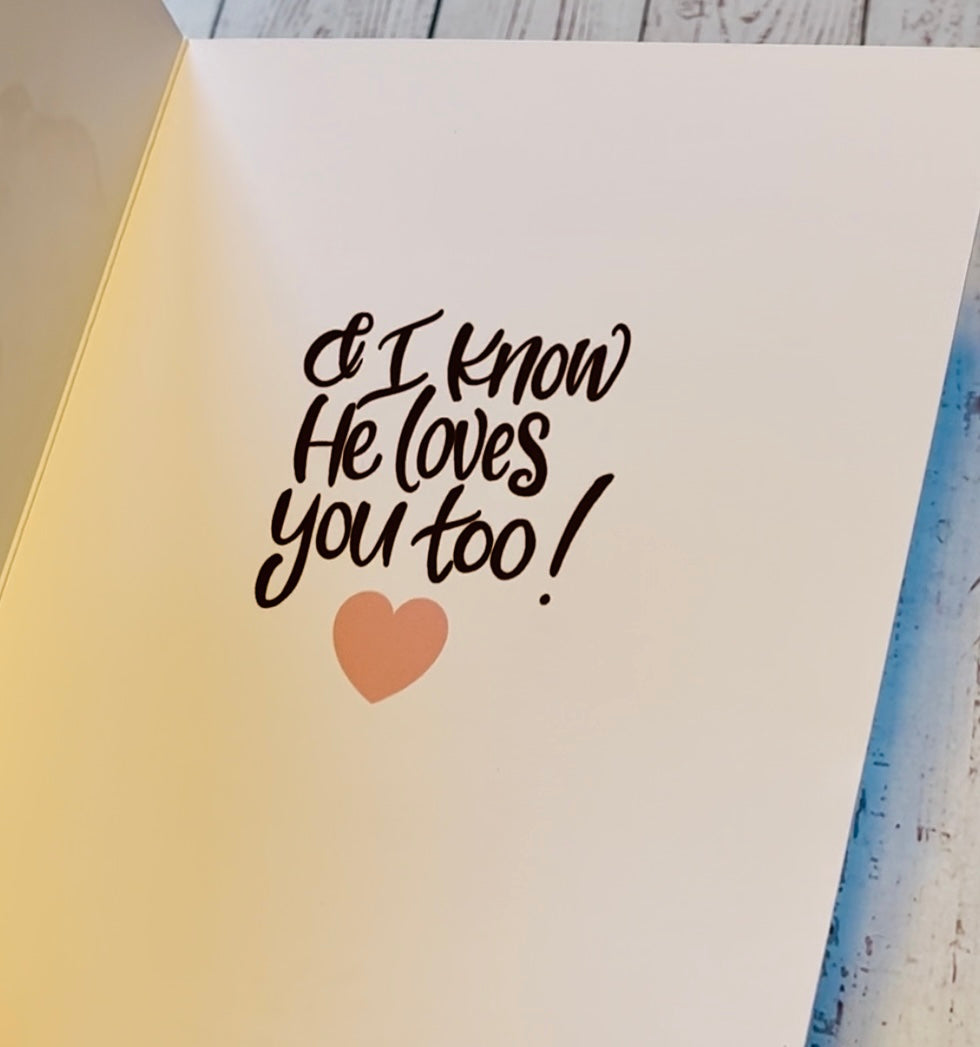 & I know
He loves
you too!